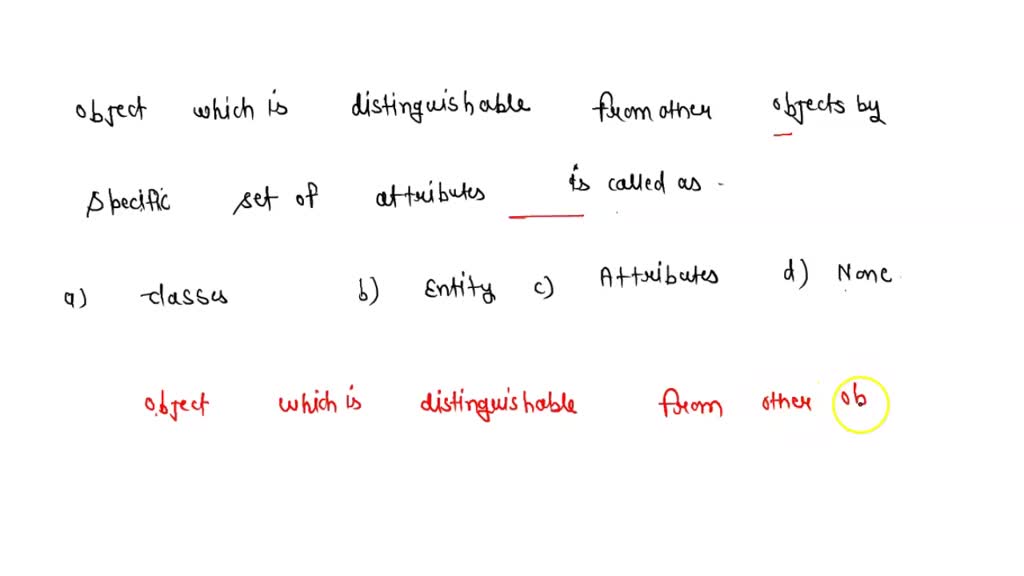 object which is distinguishable from other objects by
specific set of attributes is called as
a) classes b) Entity c) Attributes d) None
object which is distinguishable from other ob